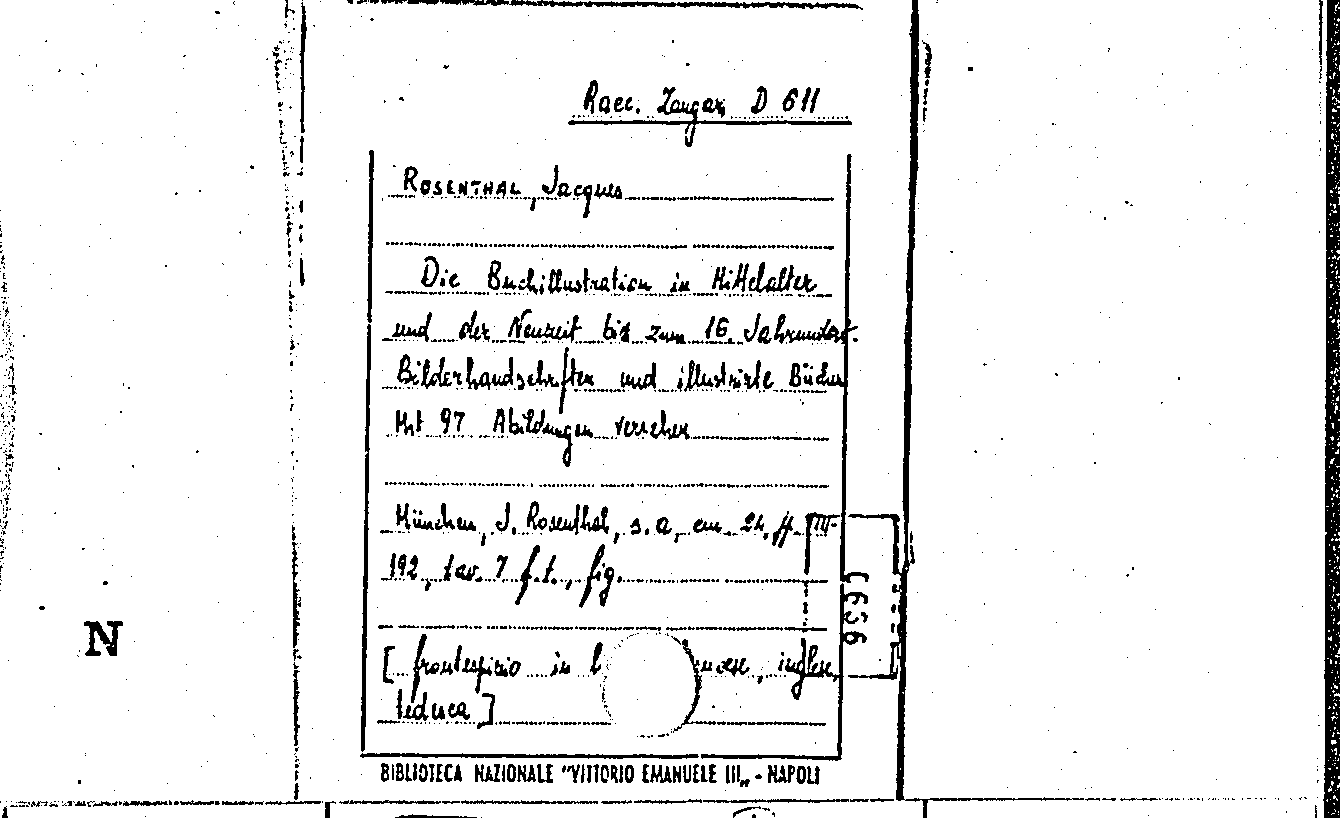 Racc. Zangari D 611
ROSENTHAL, Jacques
Die Buchillustration in Mittelalter
und der Neuzeit bis zum 16. Jahrundert.
Bilderhandschriften und illustrirte Bücher
Mit 97 Abildungen versehen
München, J. Rosenthal, s.a., cm. 24, pp. III-
192, tav. 7 f.t., fig.
[frontespizio in inglese,
tedesca]
6591
N
BIBLIOTECA NAZIONALE "VITTORIO EMANUELE III„ - NAPOLI